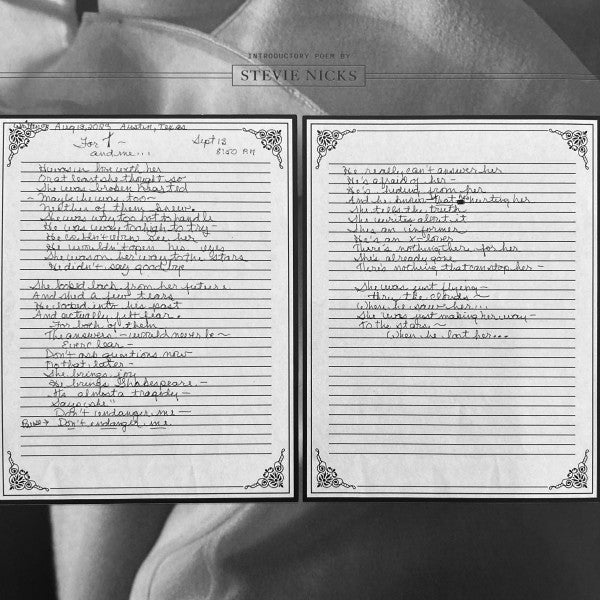 INTRODUCTORY POEM BY
STEVIE NICKS
Written Aug 13, 2023 Austin, Texas
For T ~
and me...
Sept 13
8:50 PM
He was in love with her
Or at least she thought so
She was broken hearted
~ Maybe he was too ~
Neither of them knew.
She was way too hot to handle
He was way too high to try -
He couldn't even see her
He wouldn't open his eyes
She was on her way to the stars
He didn't say goodbye
She looked back from her future
And shed a few tears
He looked into his past
And actually felt fear.
For both of them
The answers ~ would never be ~
Ever clear -
Don't ask questions now
Do that later -
She brings joy
He brings Shakespeare -
It's almost a tragedy -
Says she"
Don't endanger me -
Don't endanger me
He really can't answer her
He's afraid of her -
He's hiding from her
And he knows that he's hurting her
She tells the truth
She writes about it
She's an informer
He's an x-lover
There's nothing there for her
She's already gone
There's nothing that can stop her -
She was just flying -
thru the clouds ~
When he saw her...
She was just making her way -
To the stars ~
When he lost her...